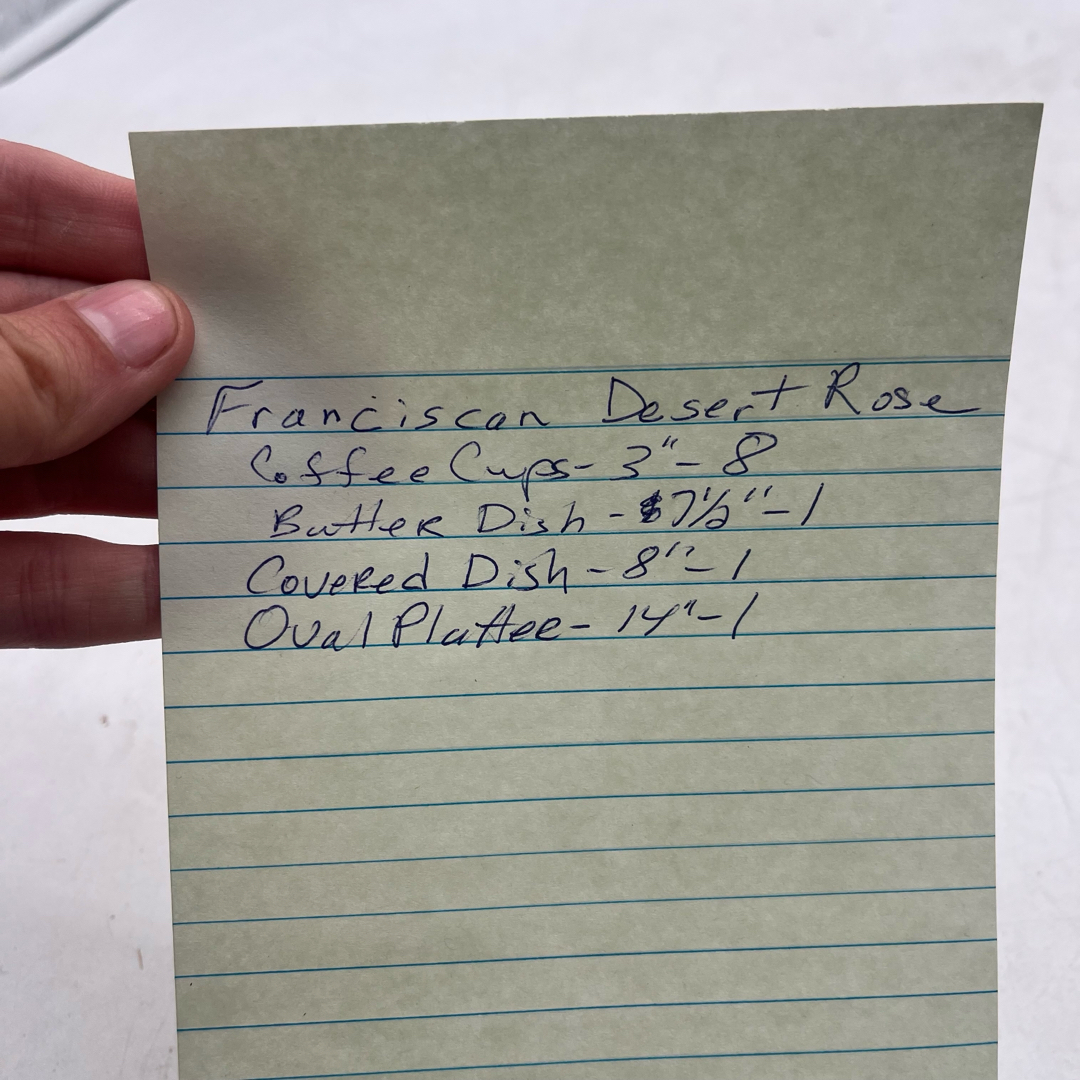 Franciscan Desert Rose
Coffee Cups - 3" - 8
Butter Dish - 7½" - 1
Covered Dish - 8" - 1
Oval Plattee - 14" - 1